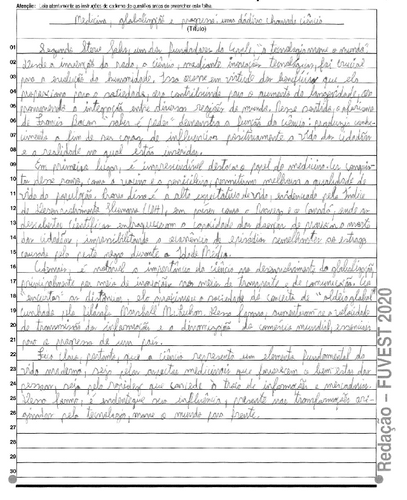 Atenção: Leia atentamente as instruções do caderno de questões antes de preencher esta folha.
Medicina, globalização e progresso: uma dádiva chamada ciência
(Título)
01 Segundo Steve Jobs, um dos fundadores da Apple, "a tecnologia move o mundo".
02 Desde a invenção da roda, a ciência, mediante inovações tecnológicas, foi crucial
03 para a evolução da humanidade. Isso ocorre em virtude dos benefícios que ela
04 proporciona para a sociedade, ora contribuindo para o aumento da longevidade, ora
05 promovendo a integração entre diversas regiões do mundo. Nesse sentido, o aforisma
06 de Francis Bacon "saber é poder" demonstra a função da ciência: produzir conhe-
07 cimento a fim de ser capaz de influenciar positivamente a vida dos cidadãos
08 e a realidade na qual estão inseridos.
09 Em primeiro lugar, é imprescindível destacar o papel da medicina. As conquis-
10 tas dessa como a vacina e a penicilina, permitiram melhorar a qualidade de
11 vida da população. Prova disso é a alta expectativa de vida, evidenciada pelo Índice
12 de Desenvolvimento Humano (IDH), em países como a Noruega e o Canadá, onde as
13 descobertas científicas enfraqueceram a capacidade das doenças de provocar a morte
14 dos cidadãos, impossibilitando a ocorrência de episódios semelhantes ao estrago
15 causado pela peste negra durante a Idade Média.
16 Ademais, é notável a importância da ciência no desenvolvimento da globalização,
17 principalmente por meio de inovações nos meios de transporte e de comunicação. Ao
18 "encurtar" as distâncias, ela aproximou a sociedade do conceito de "aldeia global"
19 cunhado pelo filósofo Marshall McLuhan. Dessa forma, aumentaram-se a velocidade
20 de transmissão das informações e a dinamização do comércio mundial, essenciais
21 para o progresso de um país.
22 Fica claro, portanto, que a ciência representa um elemento fundamental da
23 vida moderna, seja pelos aspectos medicinais que favorecem o bem-estar das
24 pessoas, seja pela rapidez que concede à troca de informações e mercadorias.
25 Dessa forma, é indubitável sua influência, presente nas transformações ori-
26 ginadas pela tecnologia, move o mundo para frente.
27
28
29
30
Redação – FUVEST 2020